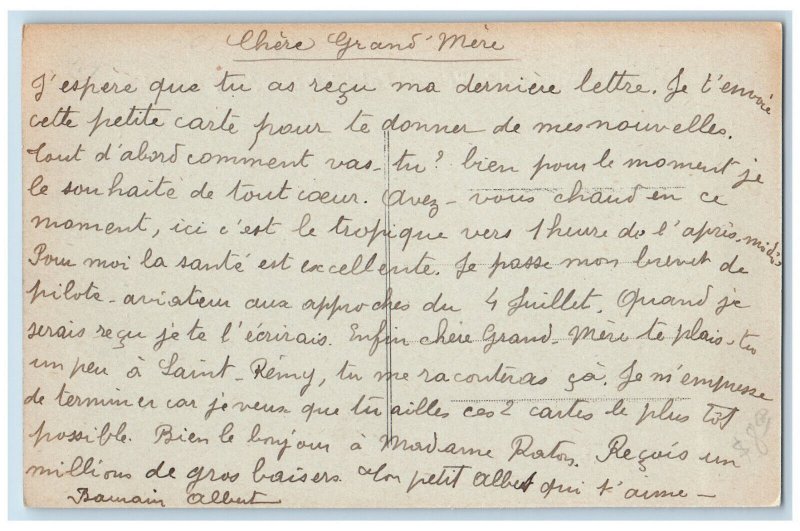 Chère Grand'Mère
J'espère que tu as reçu ma dernière lettre. Je t'envoie
cette petite carte pour te donner de mes nouvelles.
Tout d'abord comment vas-tu? bien pour le moment je
le souhaite de tout cœur. Avez-vous chaud en ce
moment, ici c'est le tropique vers 1 heure de l'après-midi.
Pour moi la santé est excellente. Je passe mon brevet de
pilote-aviateur aux approches du 4 Juillet. Quand je
serais reçu je te l'écrirais. Enfin chère Grand-Mère te plais-tu
un peu à Saint-Rémy, tu me raconteras ça. Je m'empresse
de terminer car je veux que tu ailles ces 2 cartes le plus tôt
possible. Bien le bonjour à Madame Raton. Reçois un
millions de gros baisers. Ton petit Albert qui t'aime-
Albert